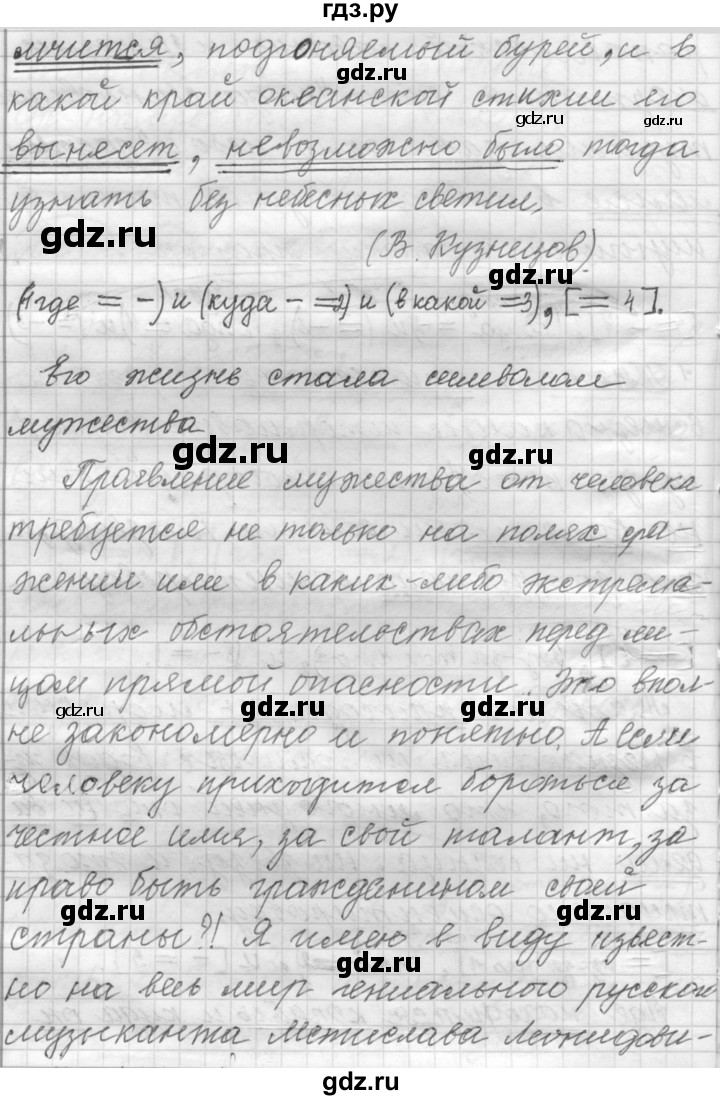 гдз.ру
мчится, подгоняемый бурей, и в
gdz.ru
какой край океанской стихии его
gdz.ru
вынесет, невозможно было тогда
узнать без небесных светил.
gdz.ru
(В. Кузнецов).
gdz.ru
(1где = -) и (куда - =2) и (в какой =3), [= 4].
Его жизнь стала символом
мужества
gdz.ru
gdz.ru
Проявление мужества от человека
требуется не только на полях сра-
жений или в каких-либо экстрема-
льных обстоятельствах перед ли-
цом прямой опасности. Это впол-
gdz.ru
gdz.ru
gdz.ru
не закономерно и понятно. А если
человеку приходится бороться за
честное имя, за свой талант, за
право быть гражданином своей
gdz.ru
gdz.ru
страны?! Я имею в виду извест-
gdz.ru
но на весь мир гениального русского
музыканта Мстислава Леонидови-
gdz.ru